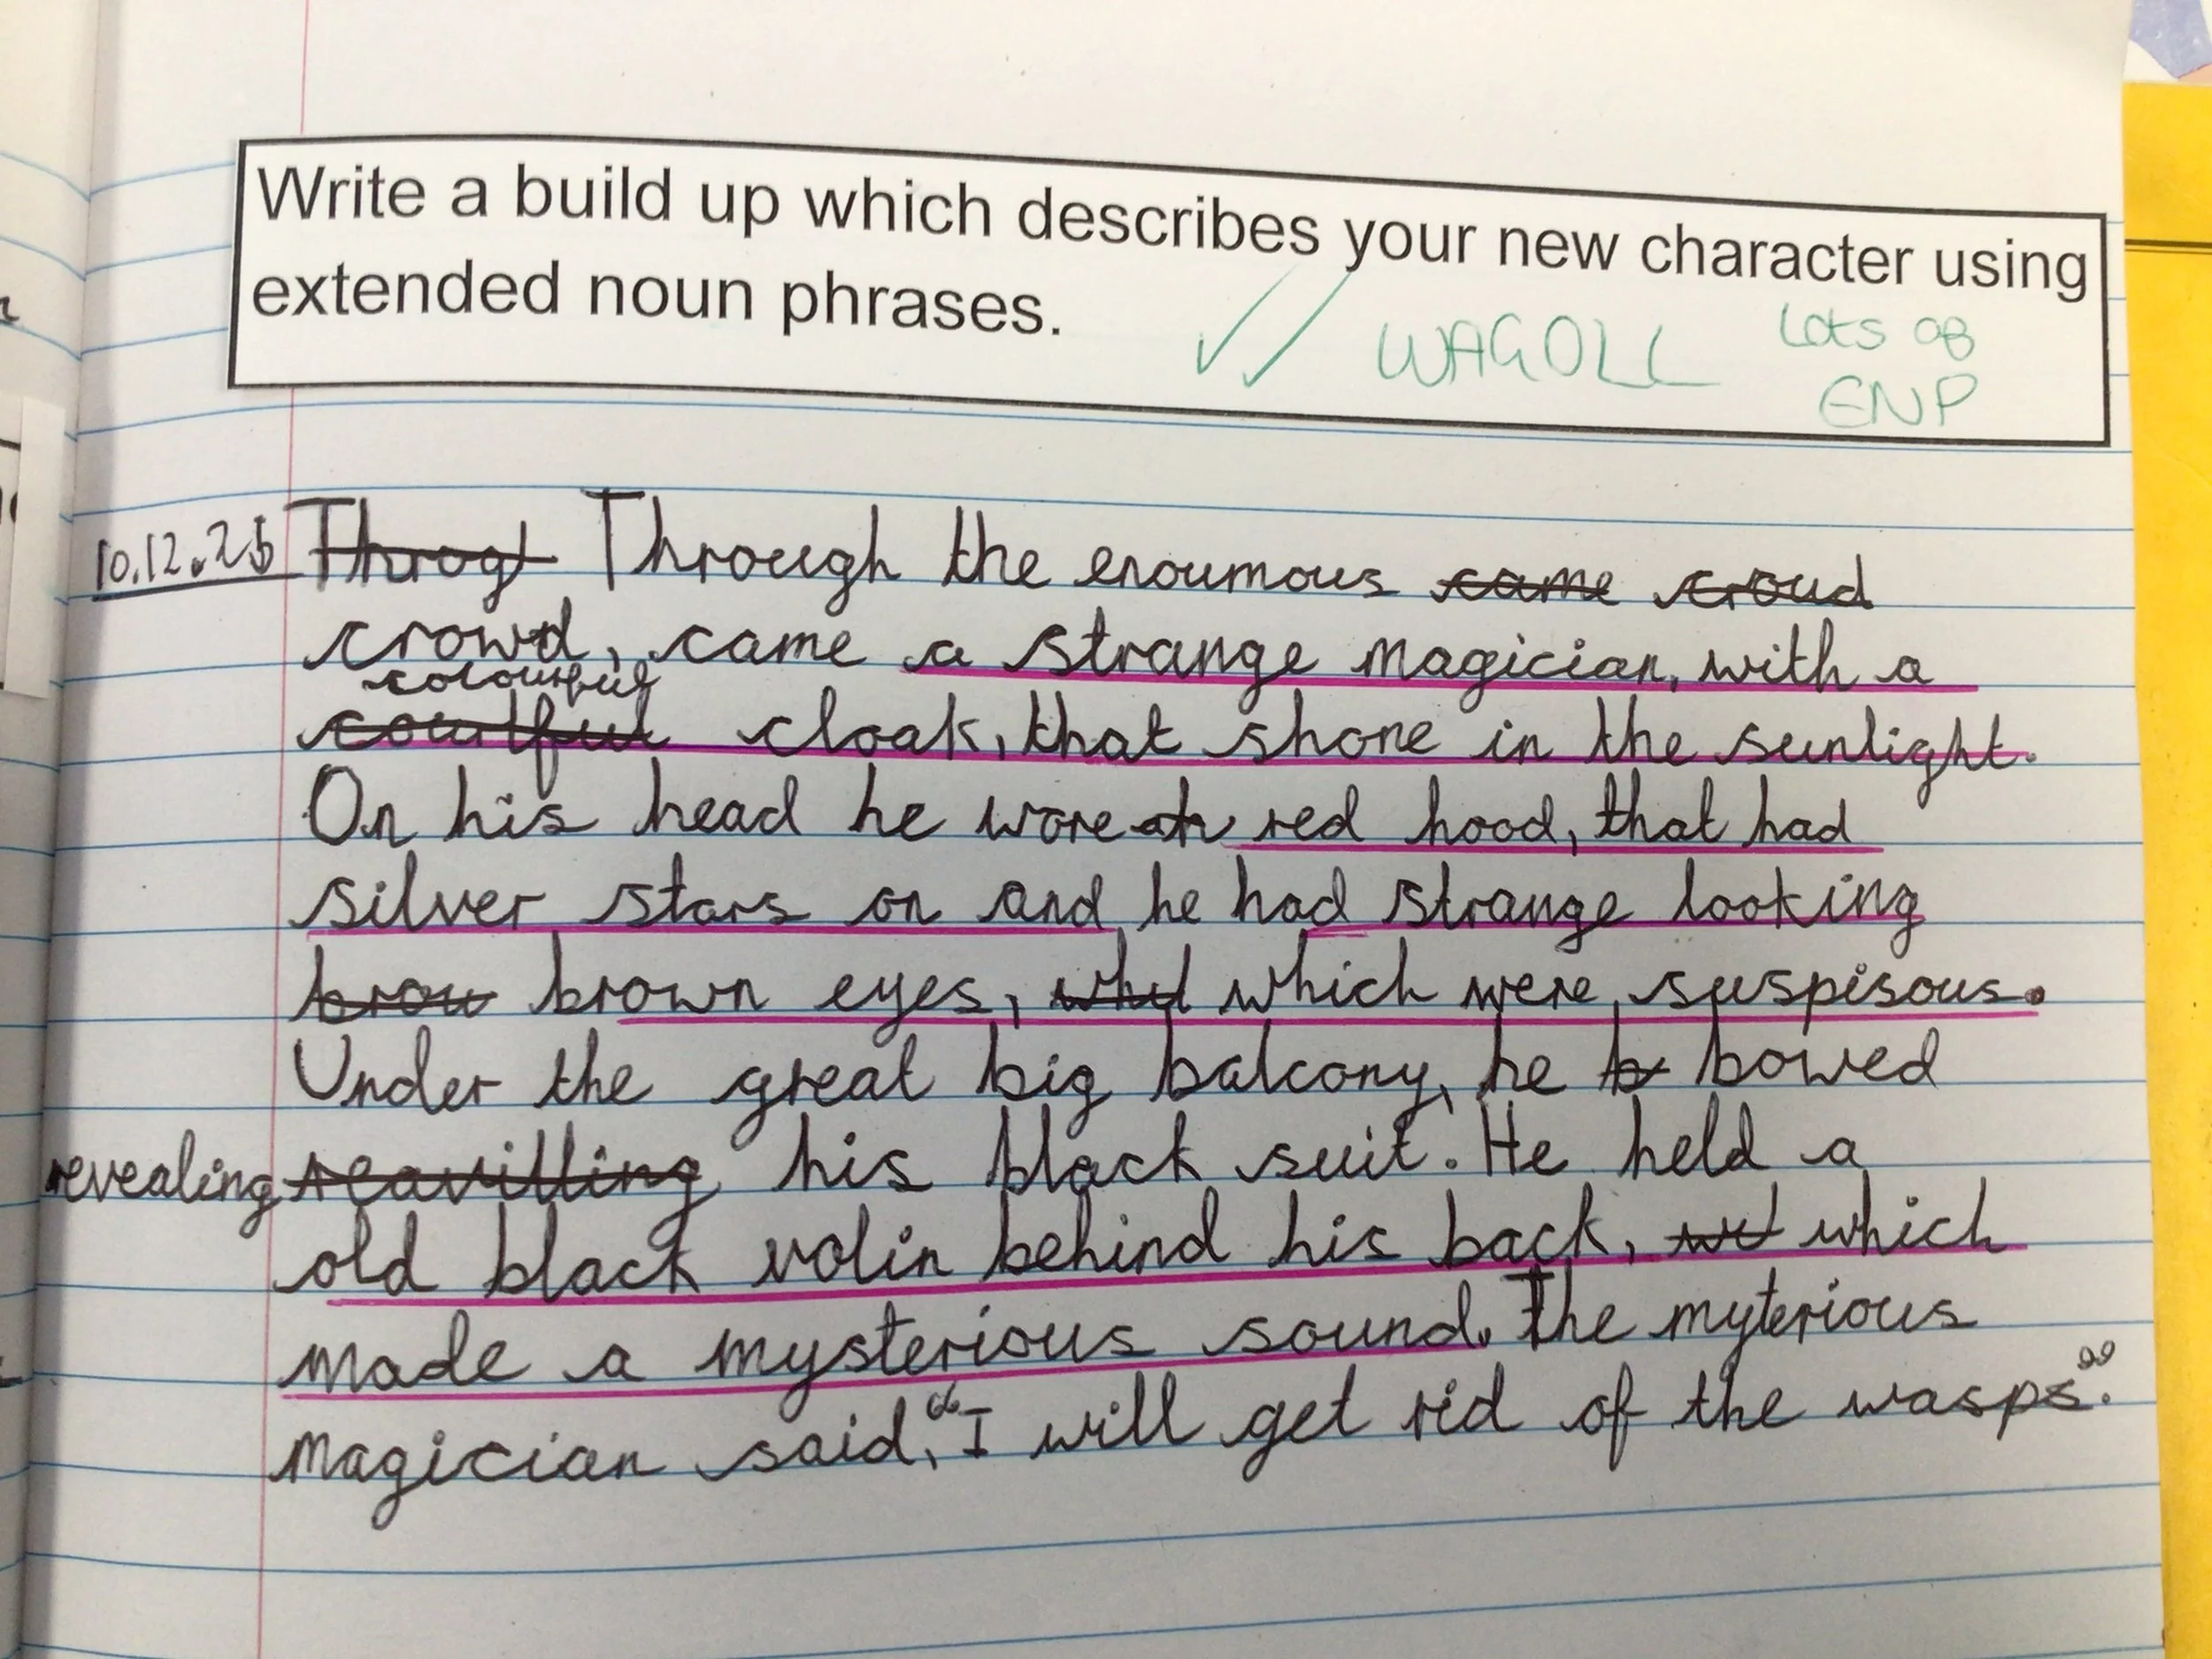 Write a build up which describes your new character using
extended noun phrases.
WAGOLL
Lots of
ENP
10.12.25 Throgt Through the enoumous came croud
crowd, came a strange magician, with a
colourful
courlful cloak, that shone in the sunlight.
On his head he wore a red hood, that had
silver stars on and he had strange looking
brow brown eyes, whd which were suspisous.
Under the great big balcony, he b bowed
revealing reavilling his black suit. He held a
old black volin behind his back, which
made a mysterious sound. The myterious
magician said, "I will get rid of the wasps".